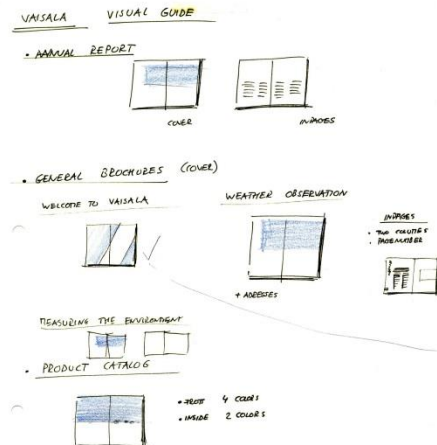 VAISALA VISUAL GUIDE
• ANNUAL REPORT
COVER
INPAGES
• GENERAL BROCHURES (COVER)
WELCOME TO VAISALA
WEATHER OBSERVATION
INPAGES
• TWO COLUMNS
• PAGENUMBER
+ ADRESSES
MEASURING THE ENVIRONMENT
• PRODUCT CATALOG
• FRONT 4 COLORS
• INSIDE 2 COLORS